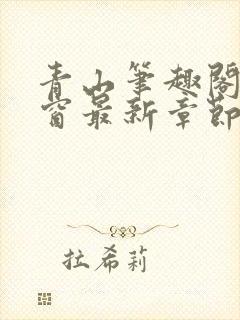 青山筆趣閣
窗最新章節
拉希莉